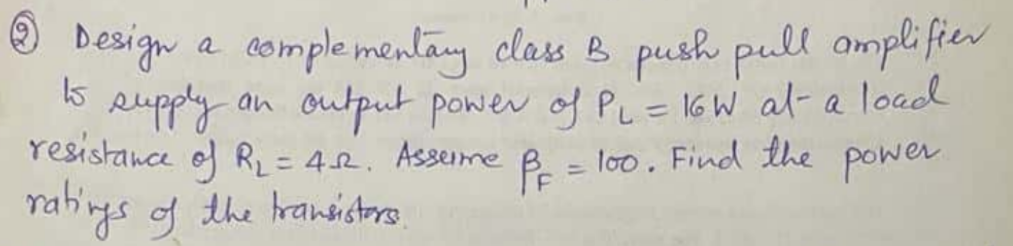 ② Design a complementary class B push pull amplifier
to supply an output power of P_L = 16W at a load
resistance of R_L = 4Ω. Asseme β_F = 100. Find the power
ratings of the transistors.